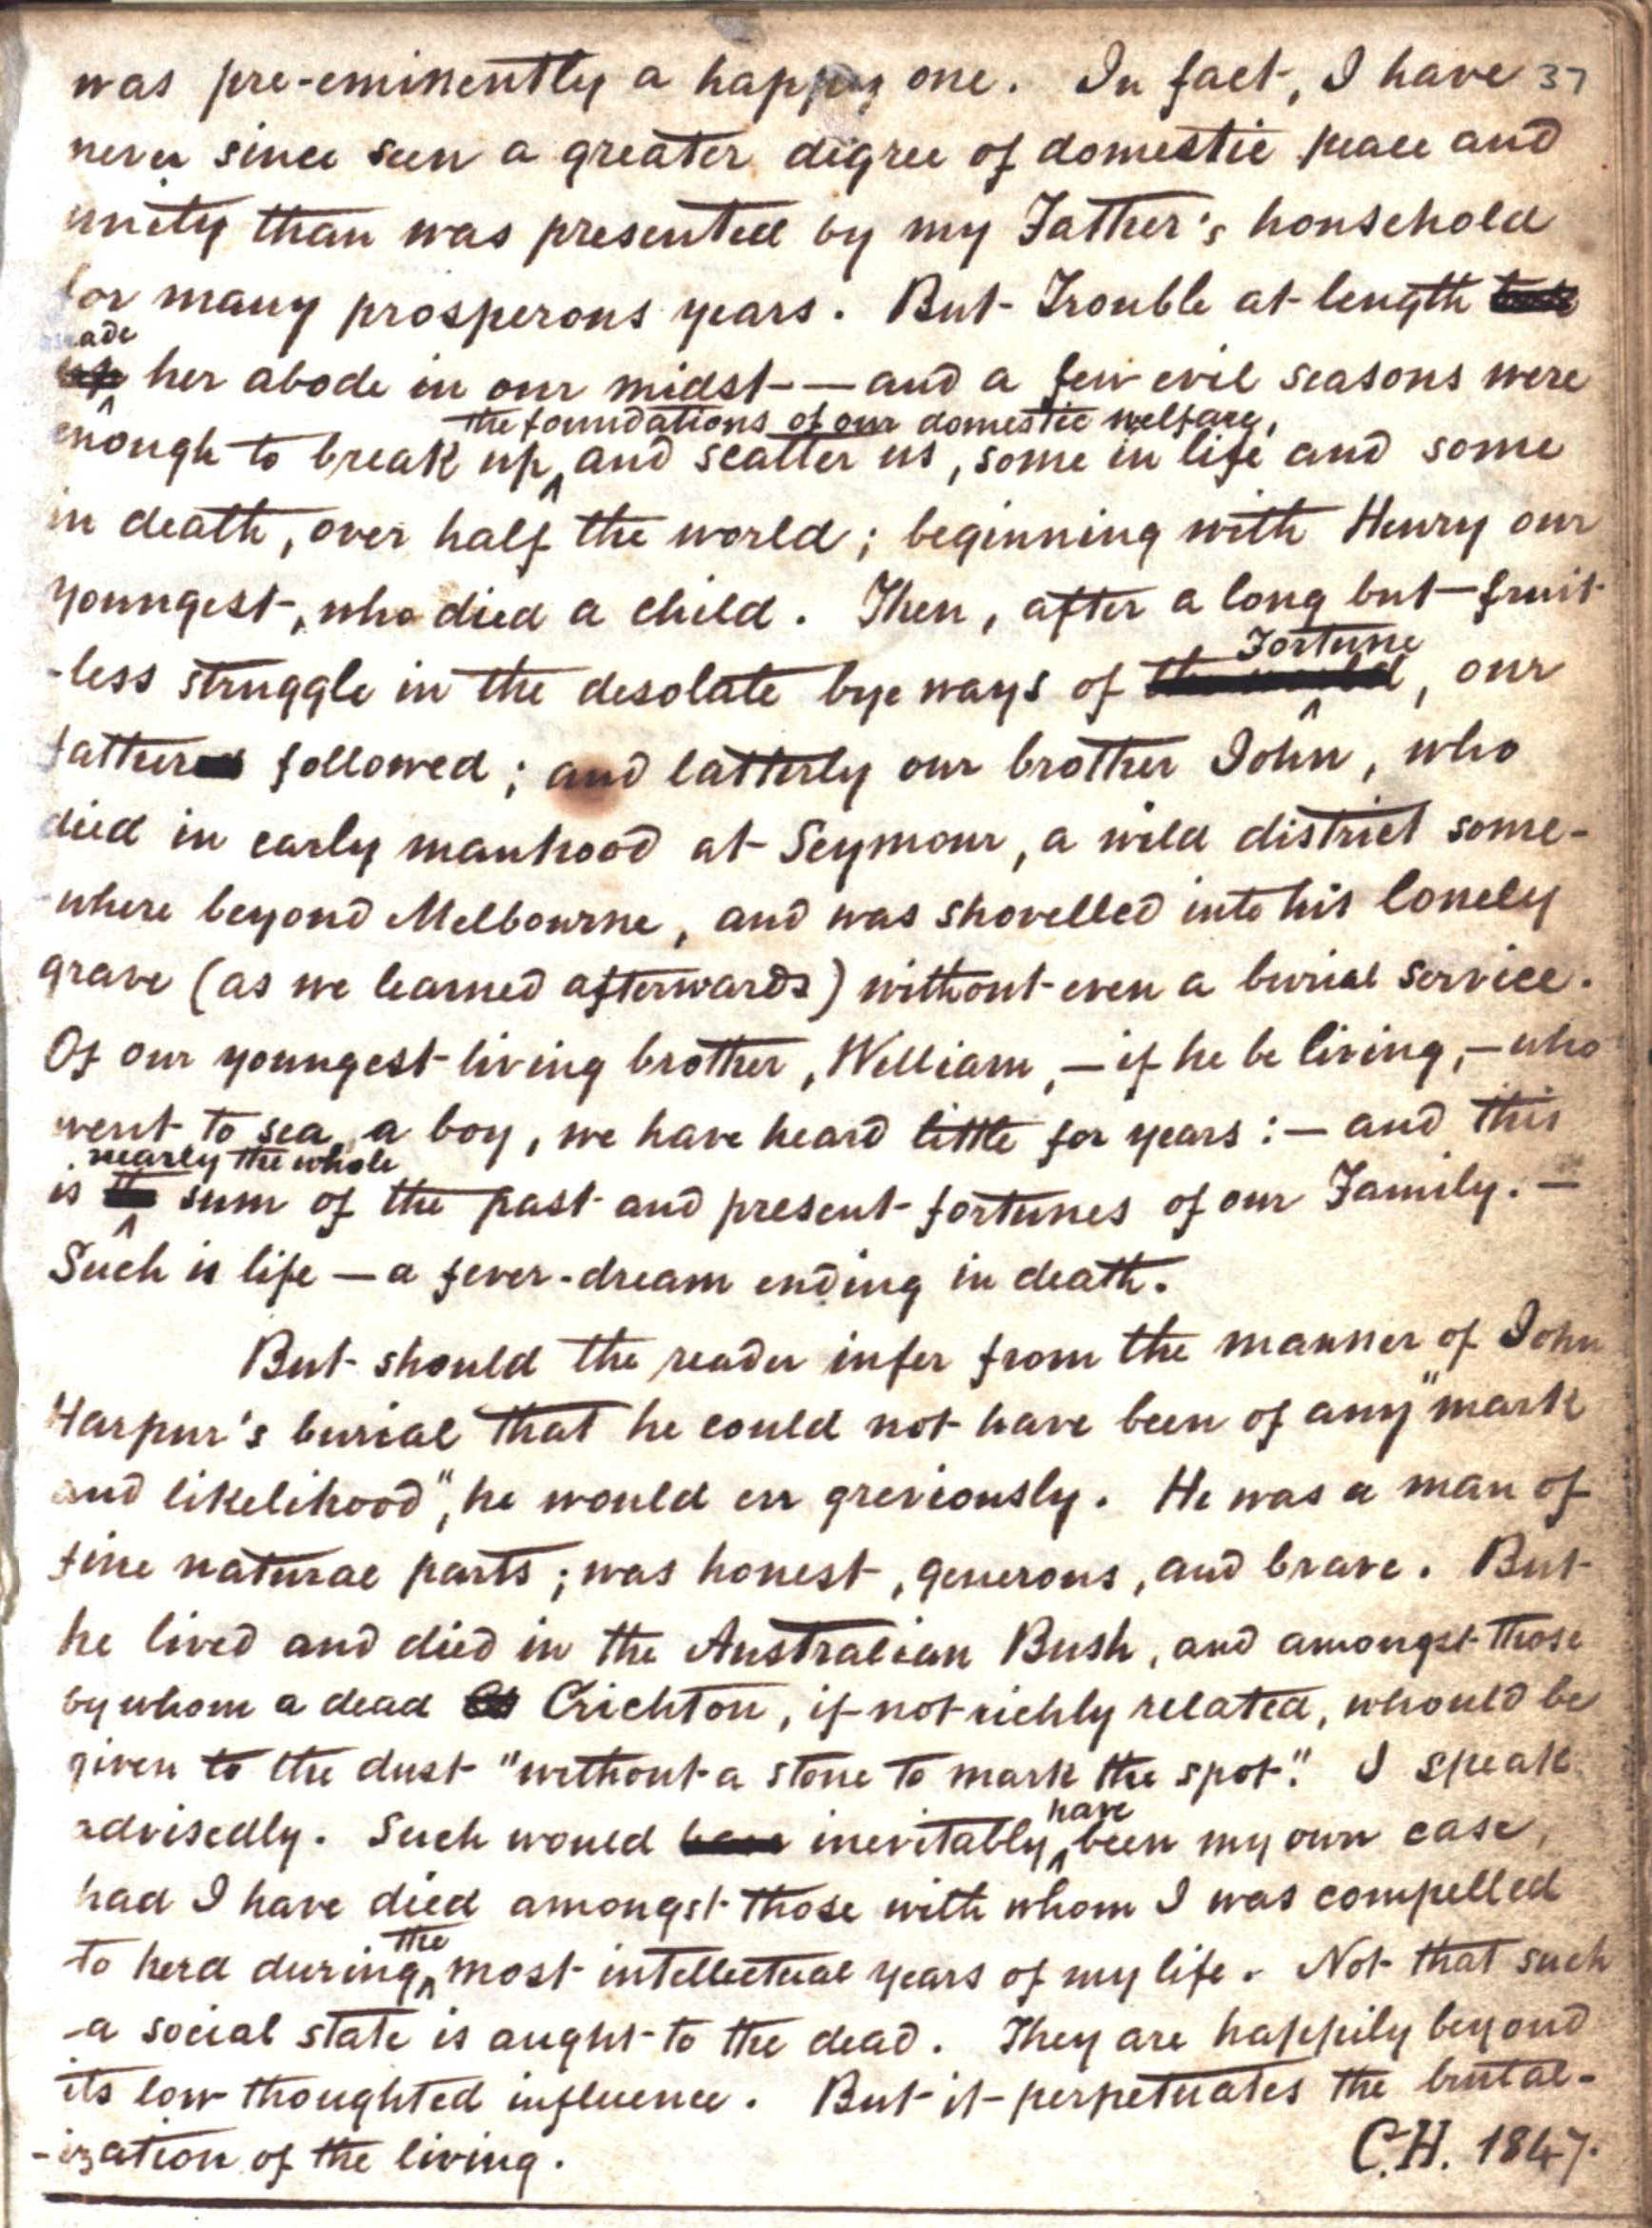 was pre-eminently a happy one. In fact, I have 37
never since seen a greater degree of domestic peace and
unity than was presented by my Father's household
for many prosperous years. But Trouble at length
made
her abode in our midst — and a few evil seasons were
the foundations of our domestic welfare,
enough to break up, and scatter us, some in life and some
in death, over half the world; beginning with Henry our
youngest, who died a child. Then, after a long but fruit-
Fortune
-less struggle in the desolate bye ways of the world, our
father followed; and latterly our brother John, who
died in early manhood at Seymour, a wild district some-
-where beyond Melbourne, and was shovelled into his lonely
grave (as we learned afterwards) without even a burial service.
Of our youngest living brother, William, — if he be living, — who
went to sea a boy, we have heard little for years: — and this
nearly the whole
is the sum of the past and present fortunes of our Family. —
Such is life — a fever-dream ending in death.
But should the reader infer from the manner of John
Harpur's burial that he could not have been of any "mark
and likelihood", he would err greviously. He was a man of
fine natural parts; was honest, generous, and brave. But
he lived and died in the Australian Bush, and amongst those
by whom a dead Crichton, if not richly related, whould be
given to the dust "without a stone to mark the spot." I speak
advisedly. Such would have inevitably been my own case,
have
had I have died amongst those with whom I was compelled
the
to herd during most intellectual years of my life. Not that such
-a social state is aught to the dead. They are happily beyond
its low thoughted influence. But it perpetuates the brutal-
-ization of the living. C.H. 1847.